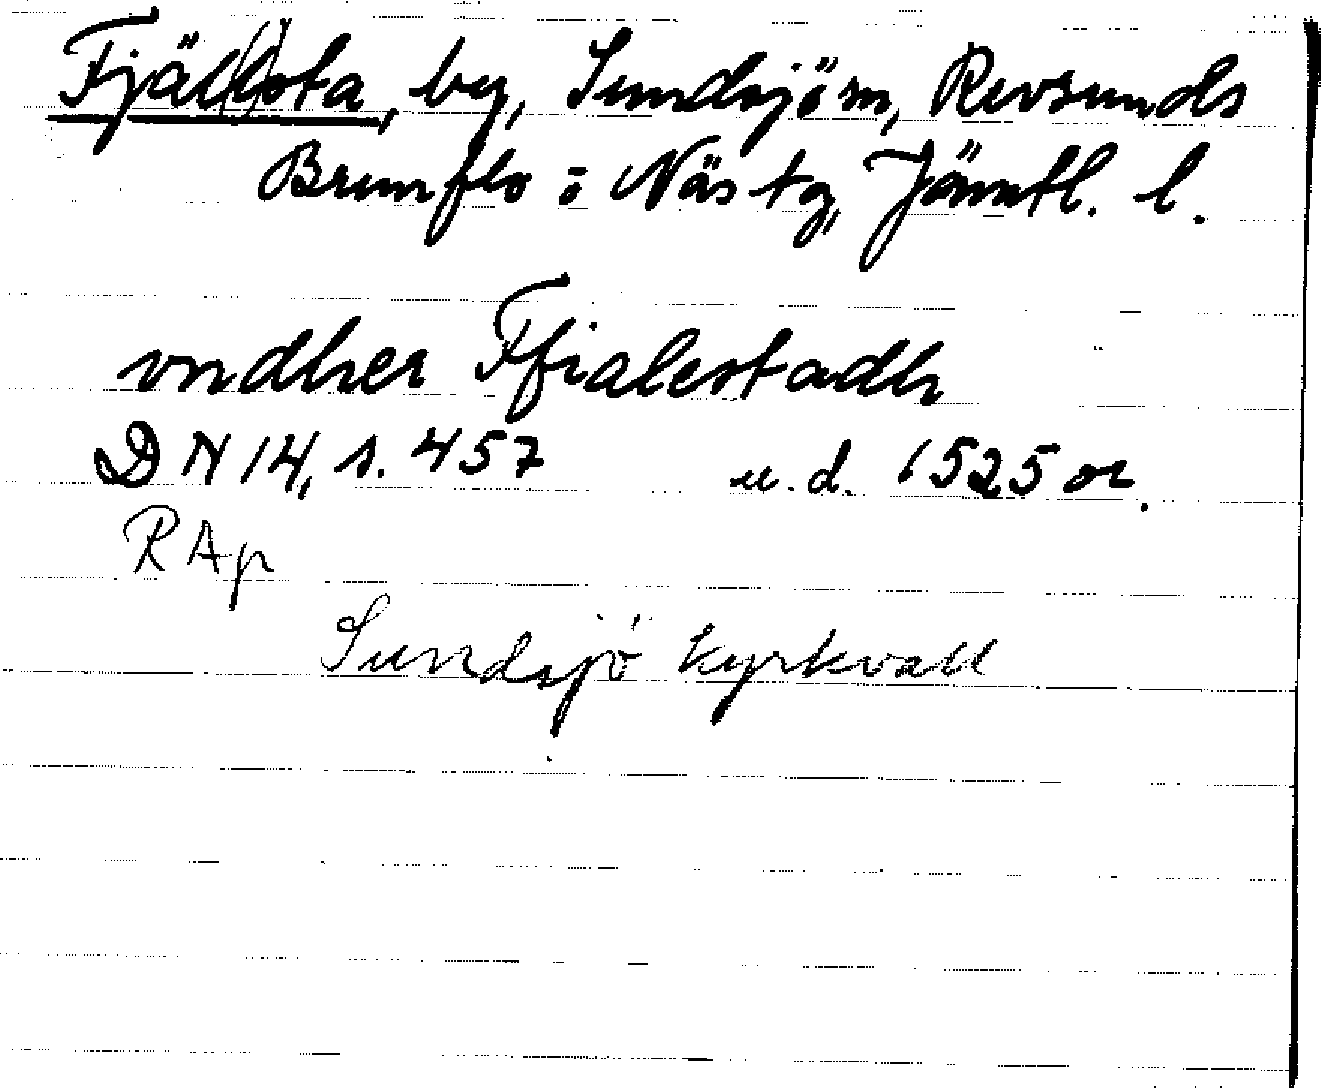 Fjäl(l)sta, by, Sundsjö sn, Revsunds
Brunflo o Näs tg, Jämtl. l.
vndher Ffialestadh
DN 14, s. 457 u.d. 1525 or.
RAp
Sundsjö kyrkvall